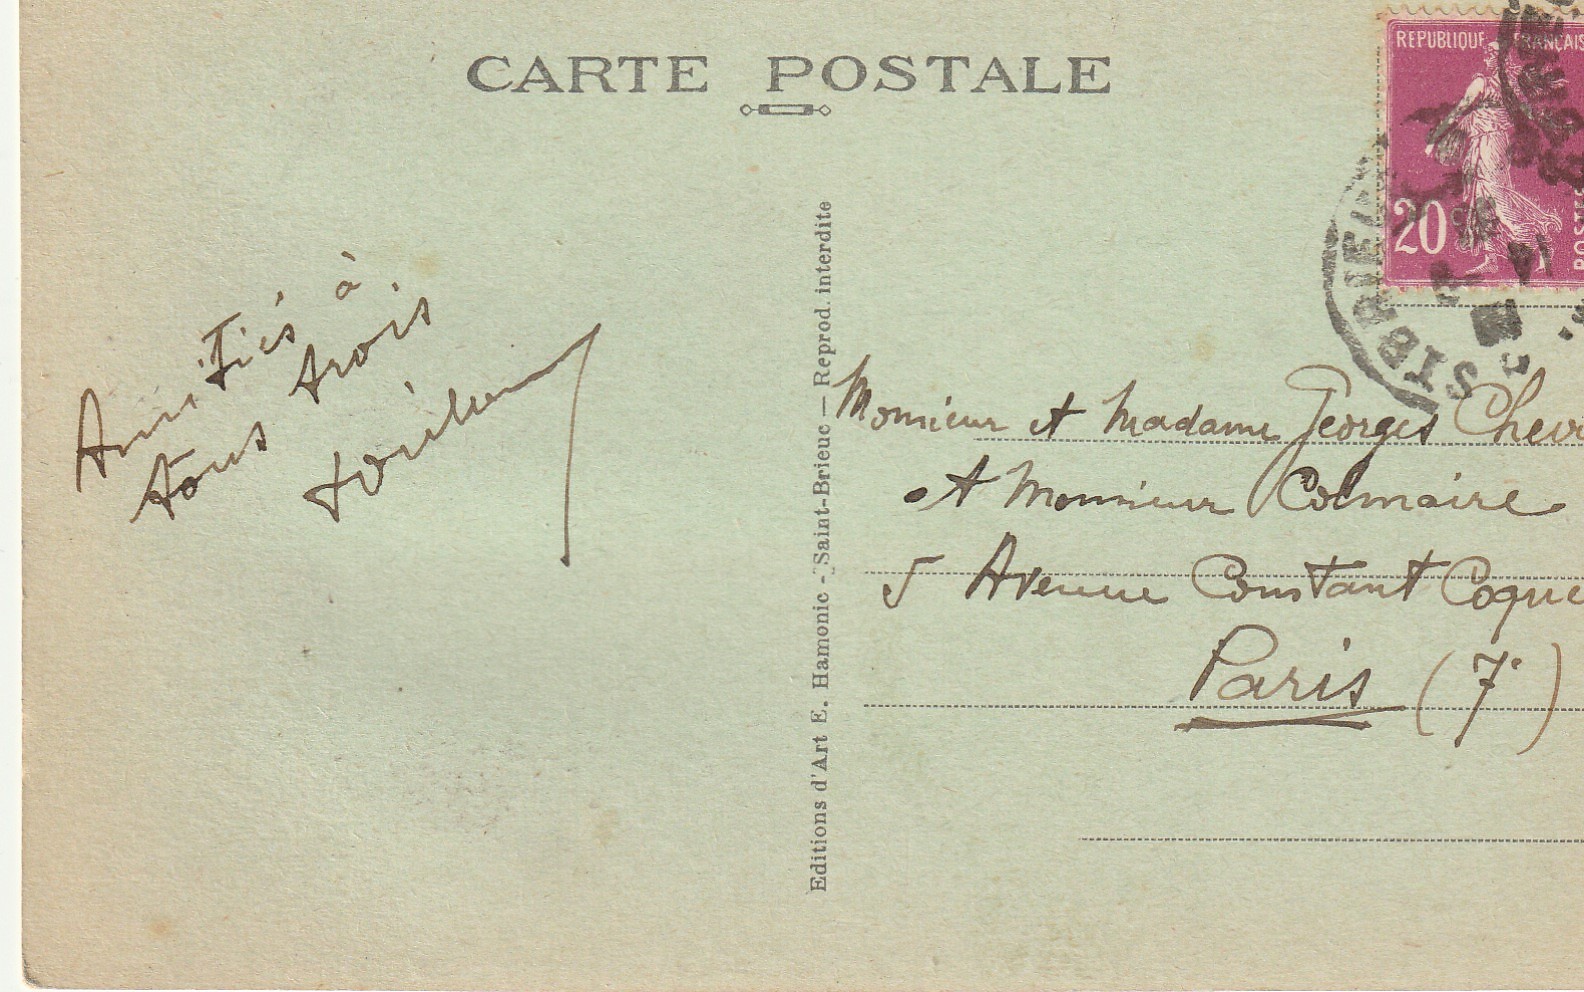 CARTE POSTALE
REPUBLIQUE FRANÇAIS
20
POSTES
ST BRIEUC
Amitiés à
tous trois
Editions d'Art E. Hamonic - Saint-Brieuc — Reprod. interdite
Monsieur et Madame Georges Chevr
et Monsieur Colmaire
5 Avenue Constant Coque
Paris (7e)